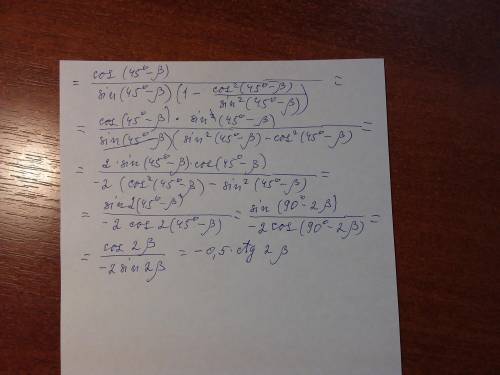 = cos (45° - β) / sin (45° - β) (1 - cos² (45° - β) / sin² (45° - β)) =
= cos (45° - β) · sin² (45° - β) / sin (45° - β) (sin² (45° - β) - cos² (45° - β) =
= 2 · sin (45° - β) · cos (45° - β) / -2 (cos² (45° - β) - sin² (45° - β) =
= sin 2 (45° - β) / -2 cos 2 (45° - β) = sin (90° - 2β) / -2 cos (90° - 2β) =
= cos 2β / -2 sin 2β = -0,5 · ctg 2β